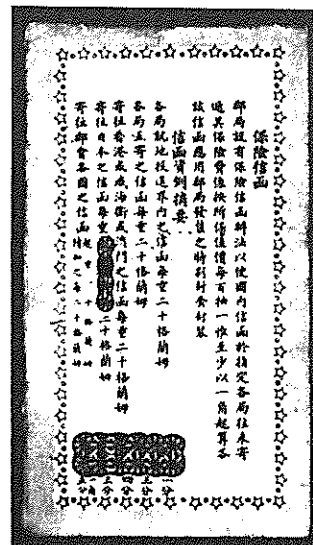 保險信函
郵局設有保險信函辦法以便國內信函於指定各局往來寄
遞其保險費係按所保值價每百抽一惟至少以一角起算各
該信函應用郵局發售之特別封套封裝
信函資例摘要
各局就地投送界内之信函每重二十格蘭姆 一分
各局互寄之信函每重二十格蘭姆 三分
寄往香港或威海衛或澳門之信函每重二十格蘭姆 四分
寄往日本之信函每重二十格蘭姆 三分
寄往郵會各國之信函 起重二十格蘭姆 一角
續加之每二十格蘭姆 五分